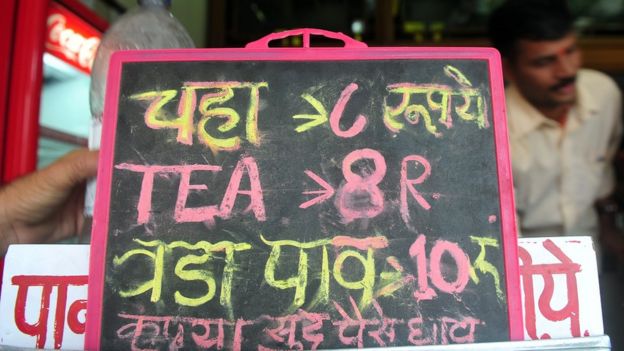 Coca-Cola
चहा → ८ रूपये
TEA → 8 R.
वडा पाव → 10 रू
कृपया सुट्टे पैसे द्यावे